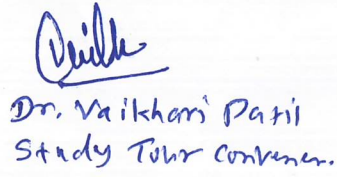 Dr. Vaikhari Patil
Study Tour Convener.